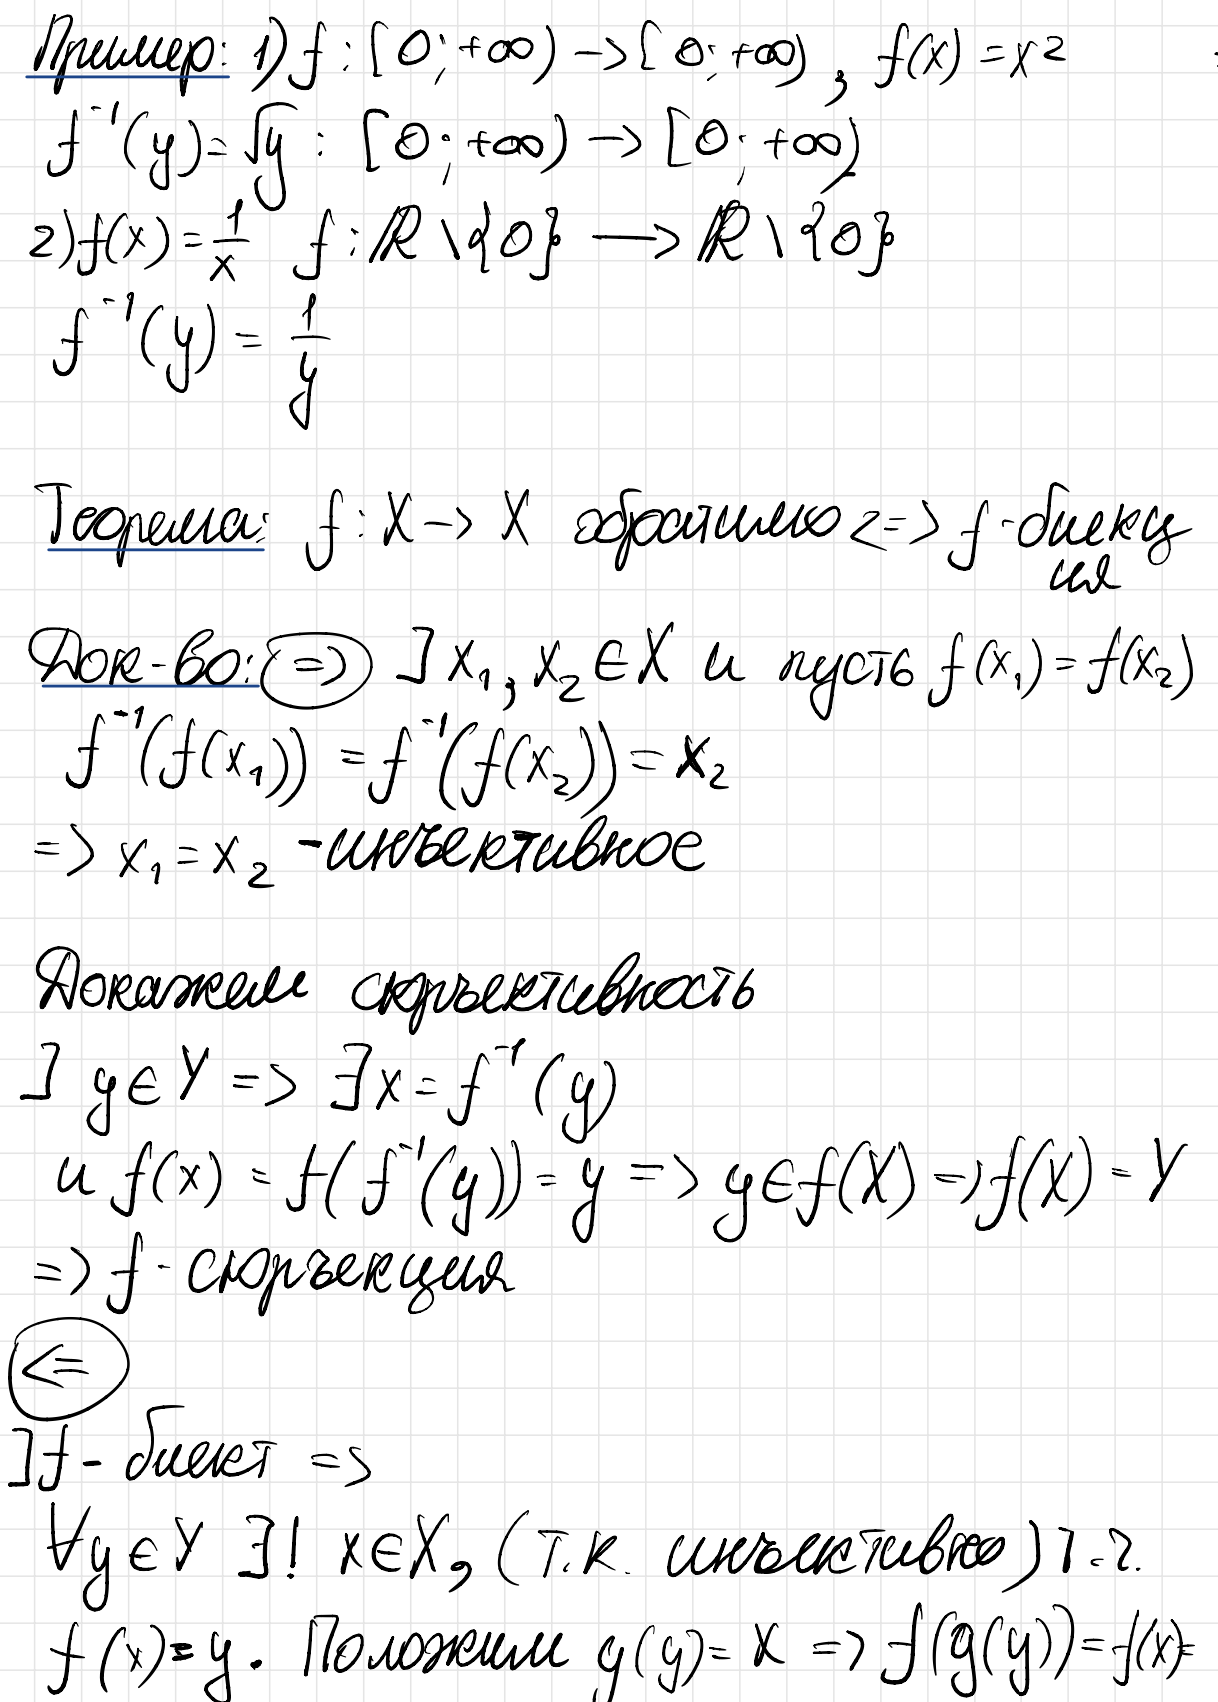 Пример: 1) f : [0; +∞) -> [0; +∞), f(x) = x²
f⁻¹(y) = √y : [0; +∞) -> [0; +∞)
2) f(x) = 1/x f : ℝ \ {0} -> ℝ \ {0}
f⁻¹(y) = 1/y
Теорема: f : X -> X обратимо <=> f - биекц
ия
Док-во: (=>) ] x₁, x₂ ∈ X и пусть f(x₁) = f(x₂)
f⁻¹(f(x₁)) = f⁻¹(f(x₂)) = x₂
=> x₁ = x₂ - инъективное
Докажем сюръективность
] y ∈ Y => ∃x = f⁻¹(y)
и f(x) = f(f⁻¹(y)) = y => y ∈ f(X) => f(X) = Y
=> f - сюръекция
<=
] f - биект =>
∀y ∈ Y ∃! x ∈ X, (т.к. инъективно) т.ч.
f(x) = y. Положим g(y) = x => f(g(y)) = f(x) =